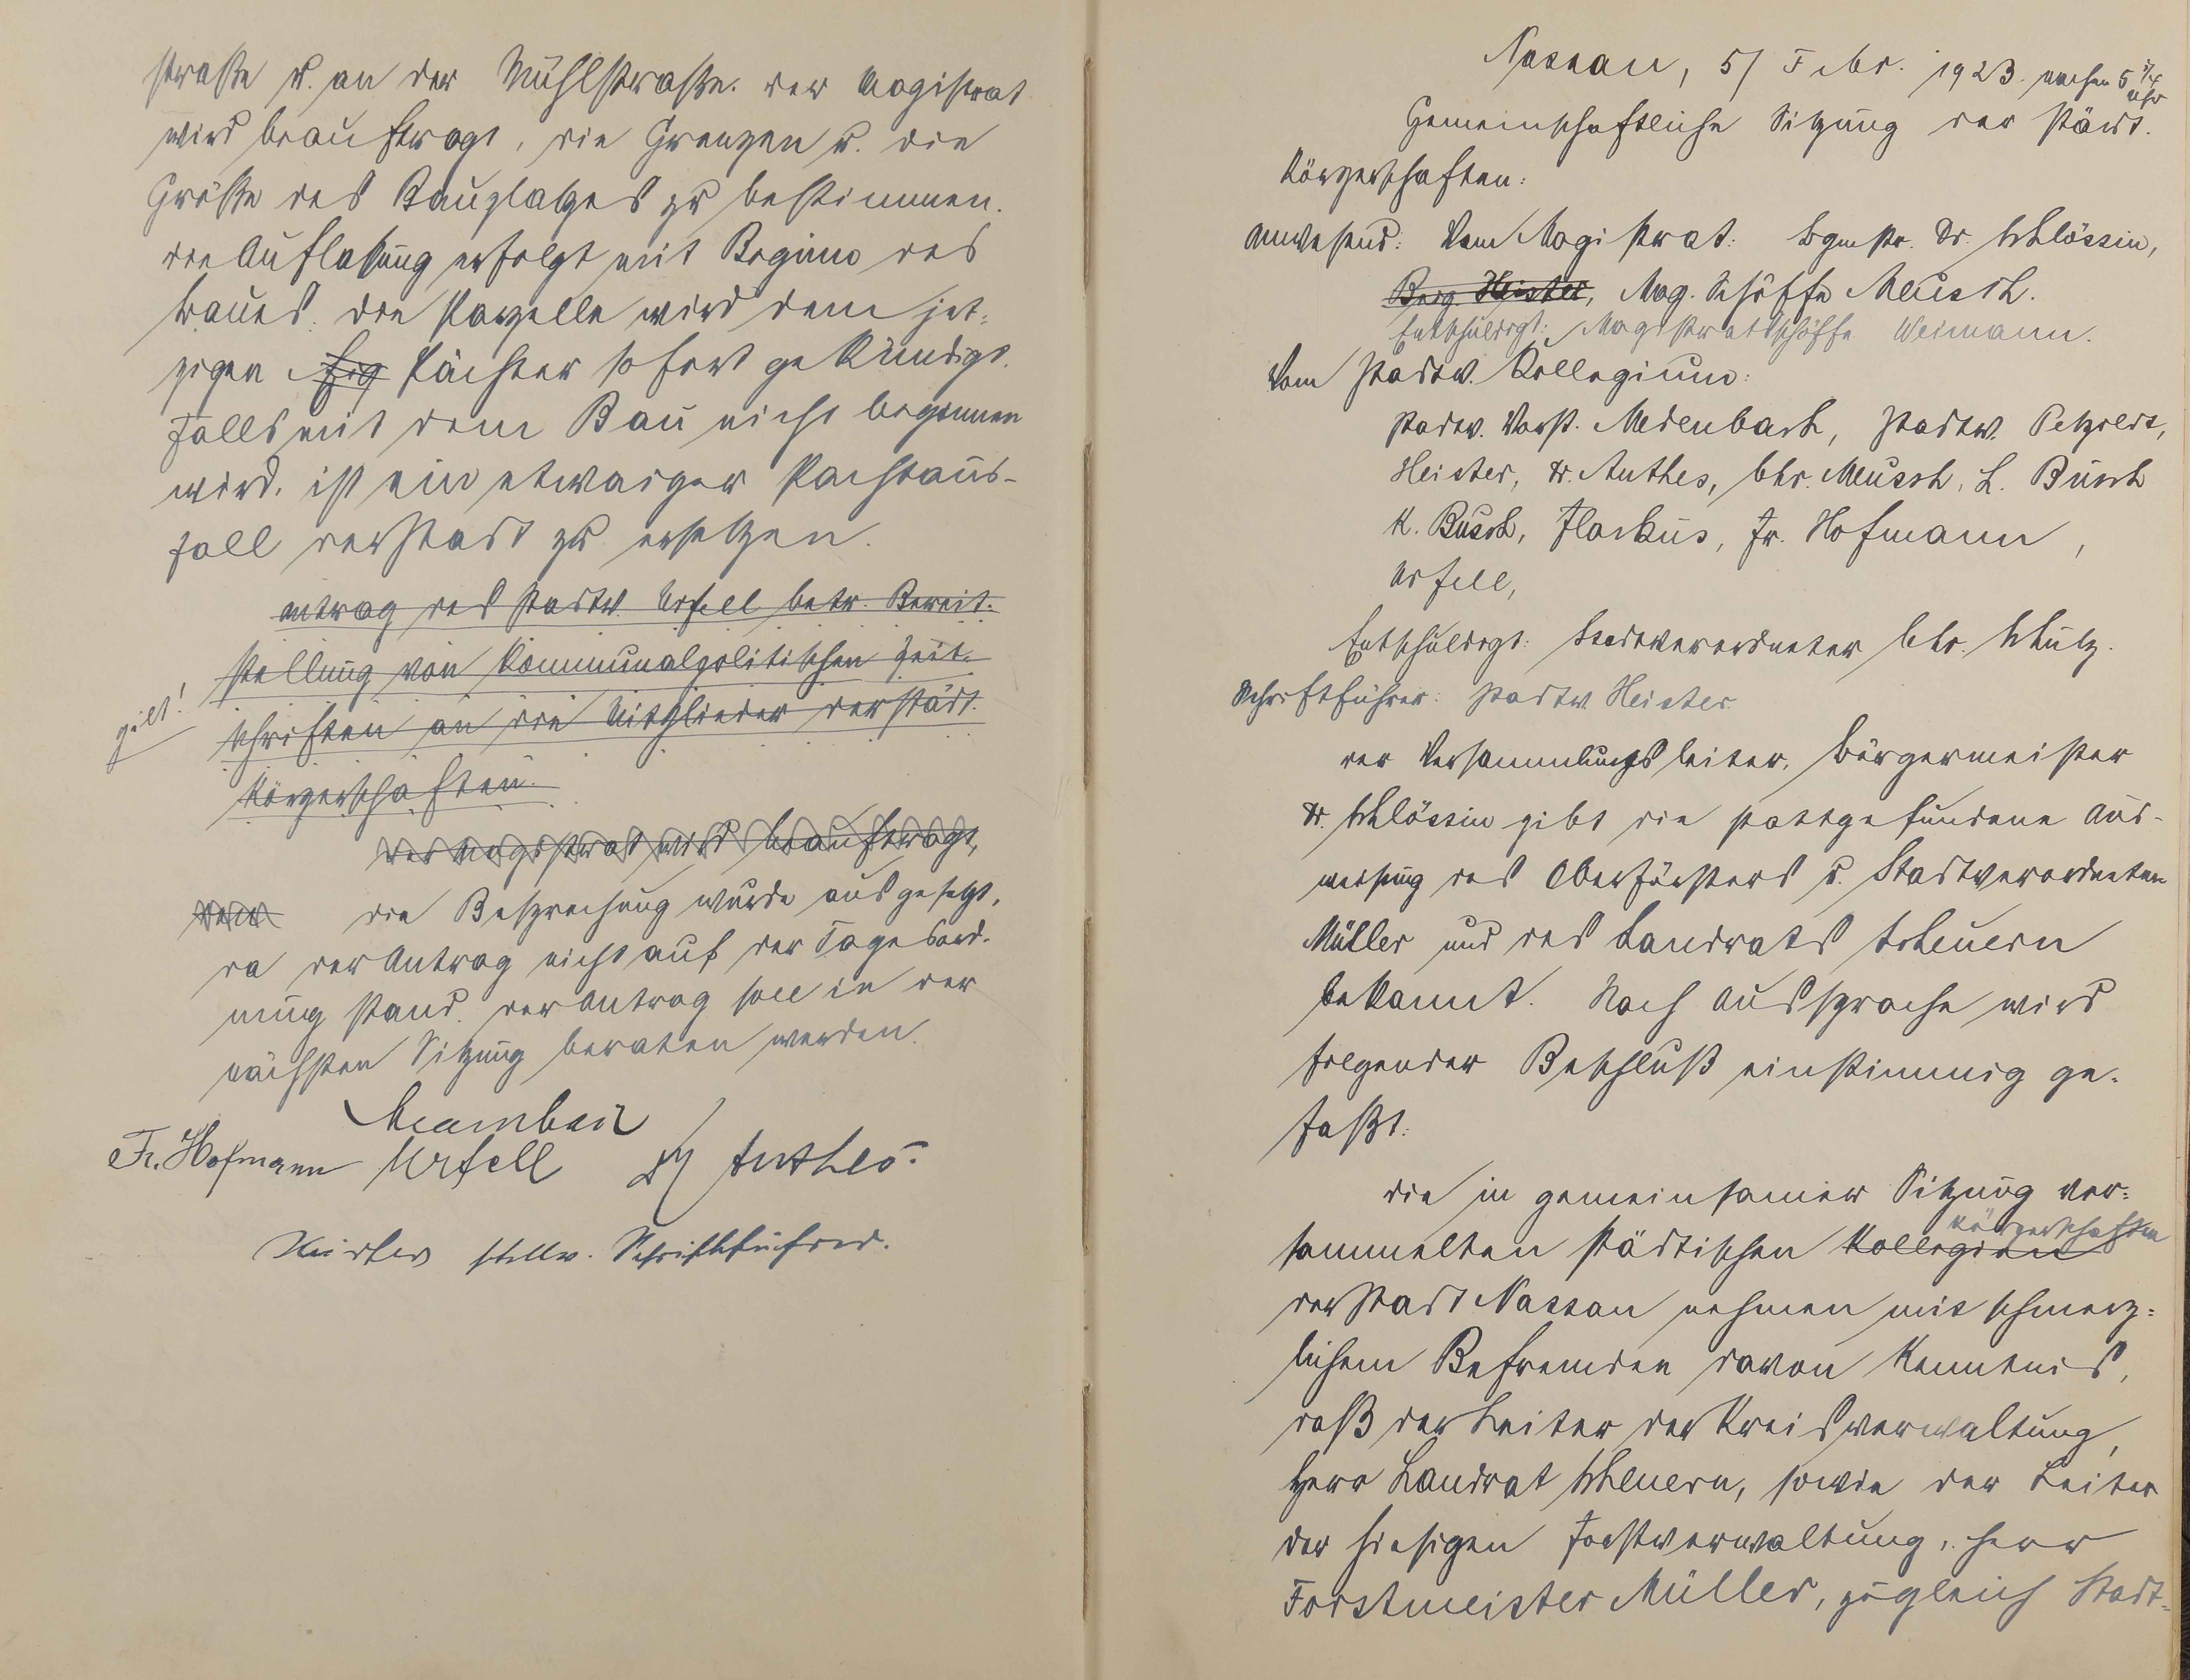 straße u. an der Mühlstraße. Der Magistrat
wird beauftragt, die Grenzen u. die
Größe des Bauplatzes zu bestimmen.
Die Auflassung erfolgt mit Beginn des
Baues. Die Parzelle wird dem jet-
zigen Pächter sofort gekündigt.
Falls mit dem Bau nicht begonnen
wird, ist ein etwaiger Pachtaus-
fall der Stadt zu ersetzen.
Antrag des Stadtv. Urfell betr. Bereit-
stellung von Kommunalpolitischen Zeit-
schriften an die Mitglieder der städt.
gilt!
Körperschaften.
Der Magistrat wird beauftragt,
die Besprechung wurde ausgesetzt,
da der Antrag nicht auf der Tagesord-
nung stand. Der Antrag soll in der
nächsten Sitzung beraten werden.
Fr. Hofmann Urfell Dr Anthes.
Heister stellv. Schriftführer.
Nassau, 5/ Febr. 1923. nachm 5 3/4 Uhr
Gemeinschaftliche Sitzung der städt.
Körperschaften:
Anwesend: Vom Magistrat: Bgmstr. Dr. Schlössin,
Beig. Heister, Mag. Schöffe Meusch.
Entschuldigt: Magistratsschöffe Weimann.
Vom Stadtv. Kollegium:
Stadtv. Vorst. Medenbach, Stadtv. Petzoldt,
Heister, Dr. Anthes, Chr. Meusch, L. Busch
K. Busch, Flackus, Fr. Hofmann,
Urfell,
Entschuldigt: Stadtverordneter Chr. Schulz.
Schriftführer: Stadtv. Heister.
Der Versammlungsleiter, Bürgermeister
Dr. Schlössin gibt die stattgefundene Aus-
weisung des Oberförsters u. Stadtverordneten
Müller und des Landrats Scheuern
bekannt. Nach Aussprache wird
folgender Beschluß einstimmig ge-
faßt:
Die in gemeinsamer Sitzung ver-
Körperschaften
sammelten städtischen Kollegien
der Stadt Nassau nehmen mit schmerz-
lichem Befremden davon Kenntnis,
daß der Leiter der Kreisverwaltung,
Herr Landrat Scheuern, sowie der Leiter
der hiesigen Forstverwaltung, Herr
Forstmeister Müller, zugleich Stadt-